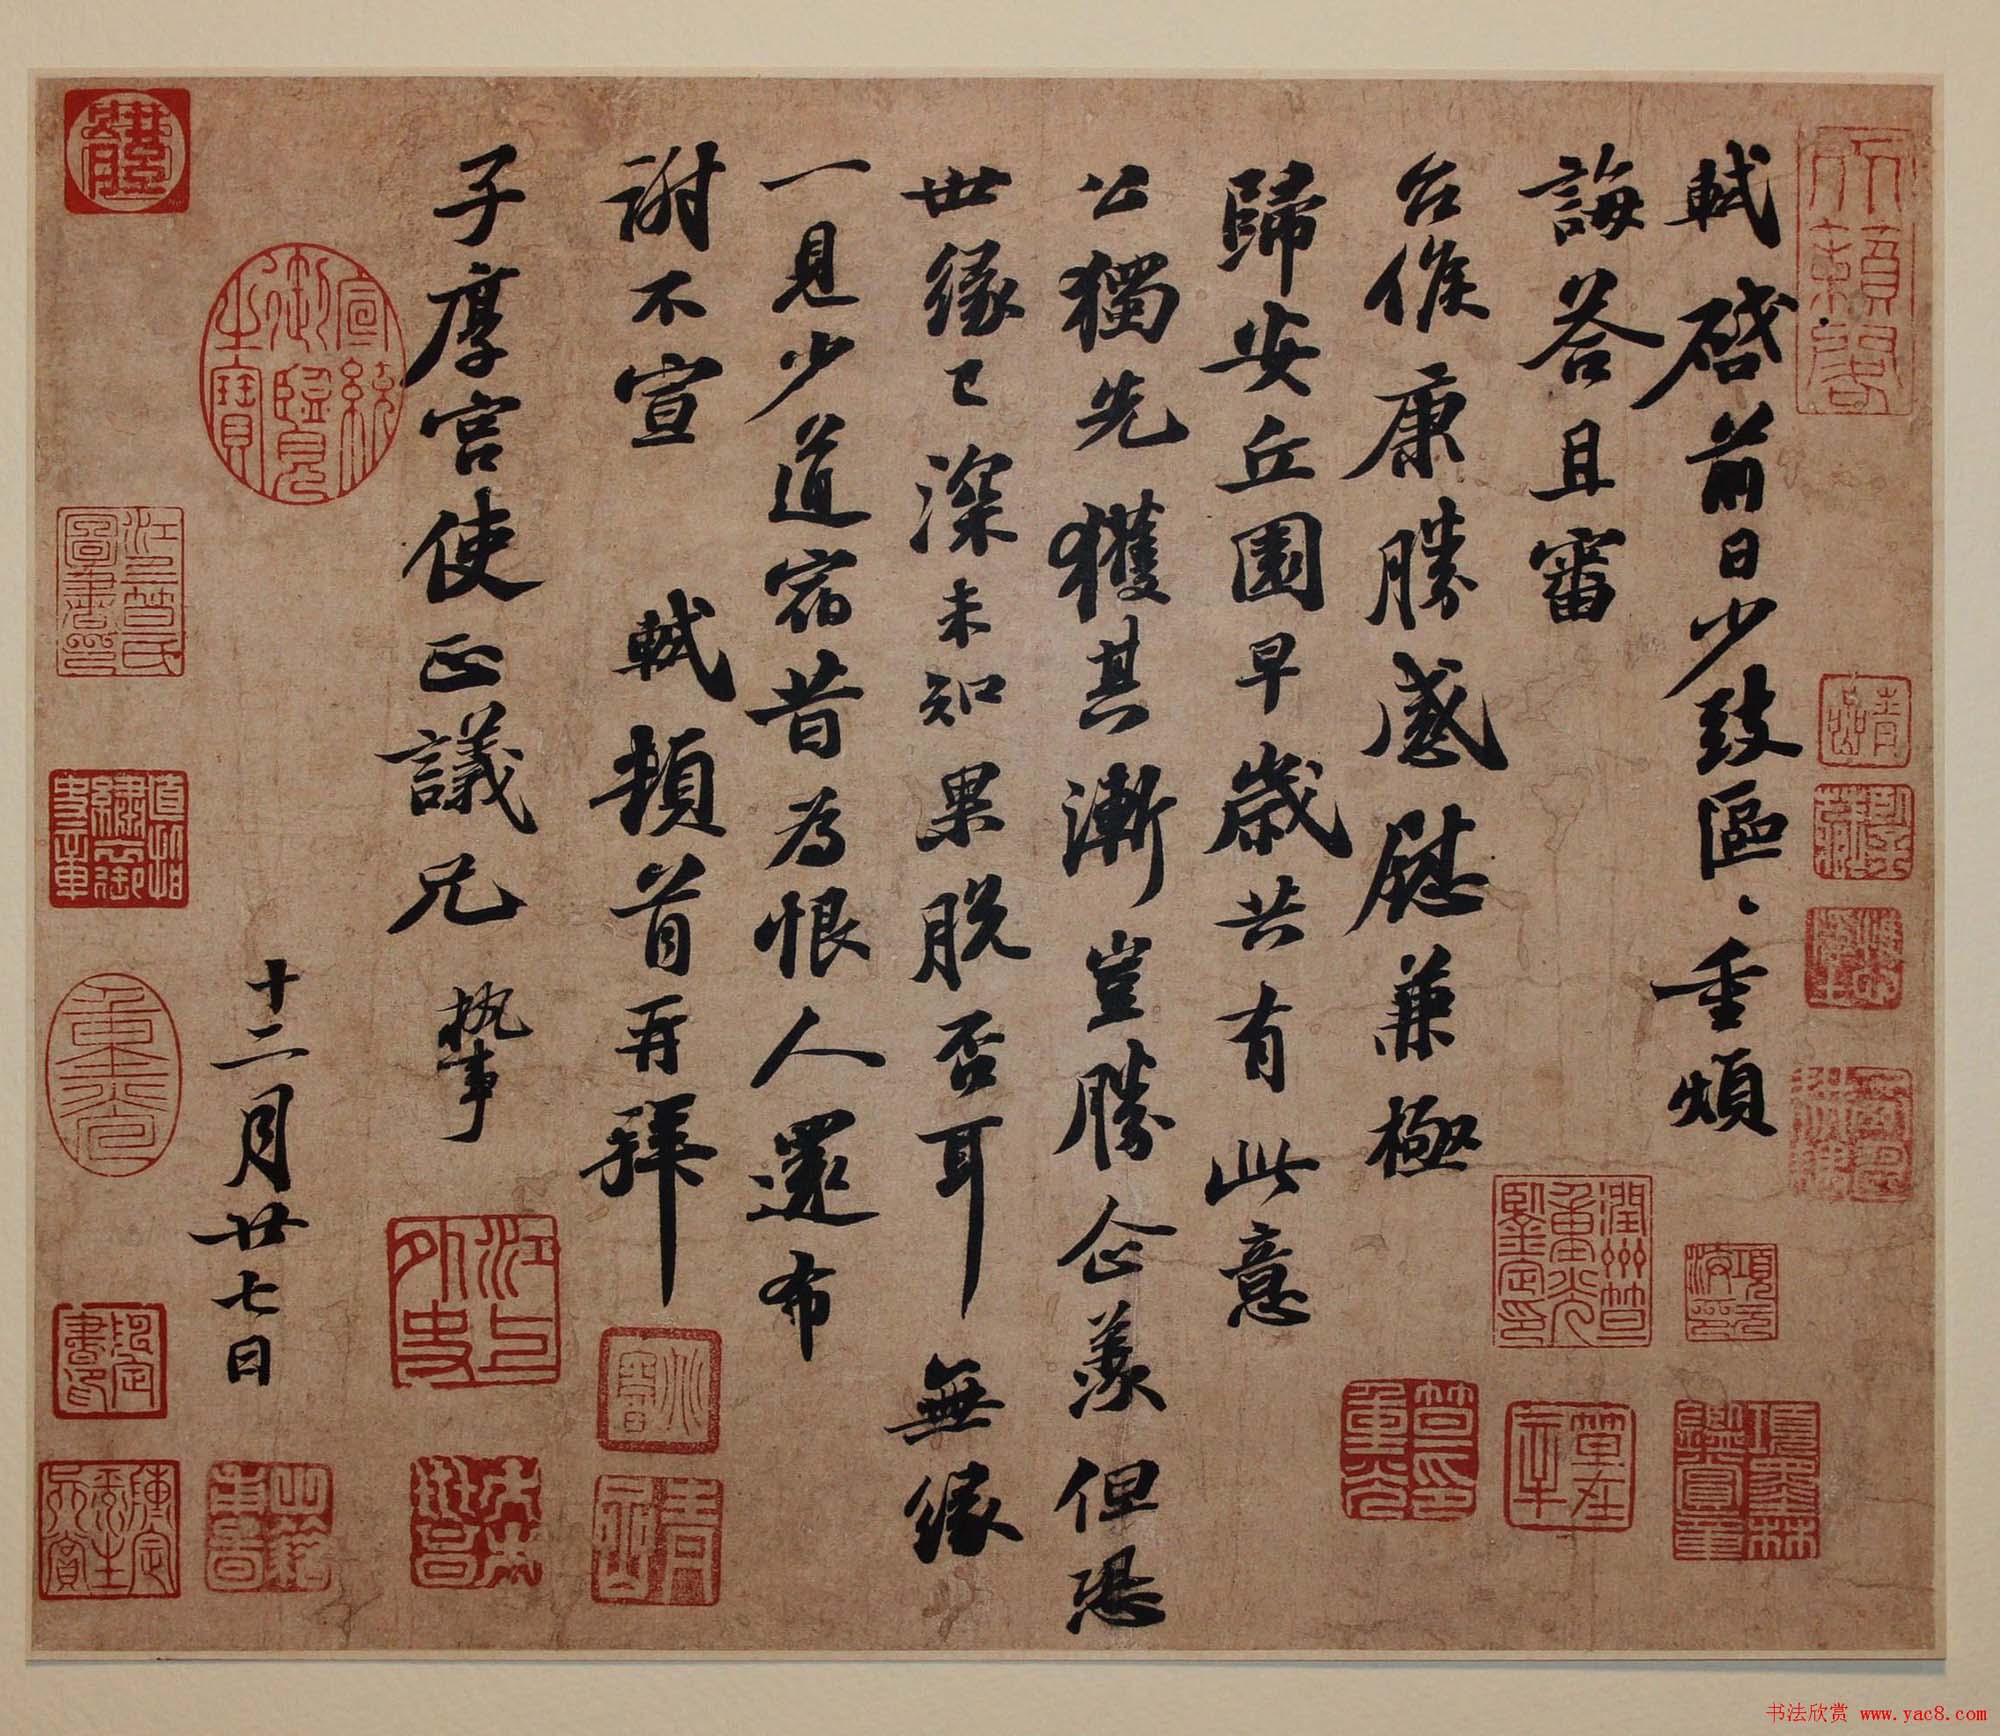 軾啓前日少致區〻重煩
誨荅且審
台候康勝感慰兼極
歸安丘園早歲共有此意
公獨先獲其漸豈勝企羨但恐
世緣已深未知果脫否耳無緣
一見少道宿昔為恨人還布
謝不宣 軾頓首再拜
子厚宮使正議兄 執事
十二月廿七日
天籟閣
項墨林鑑賞章
宣統御覽之寶
江上外史
书法欣赏 www.yac8.com